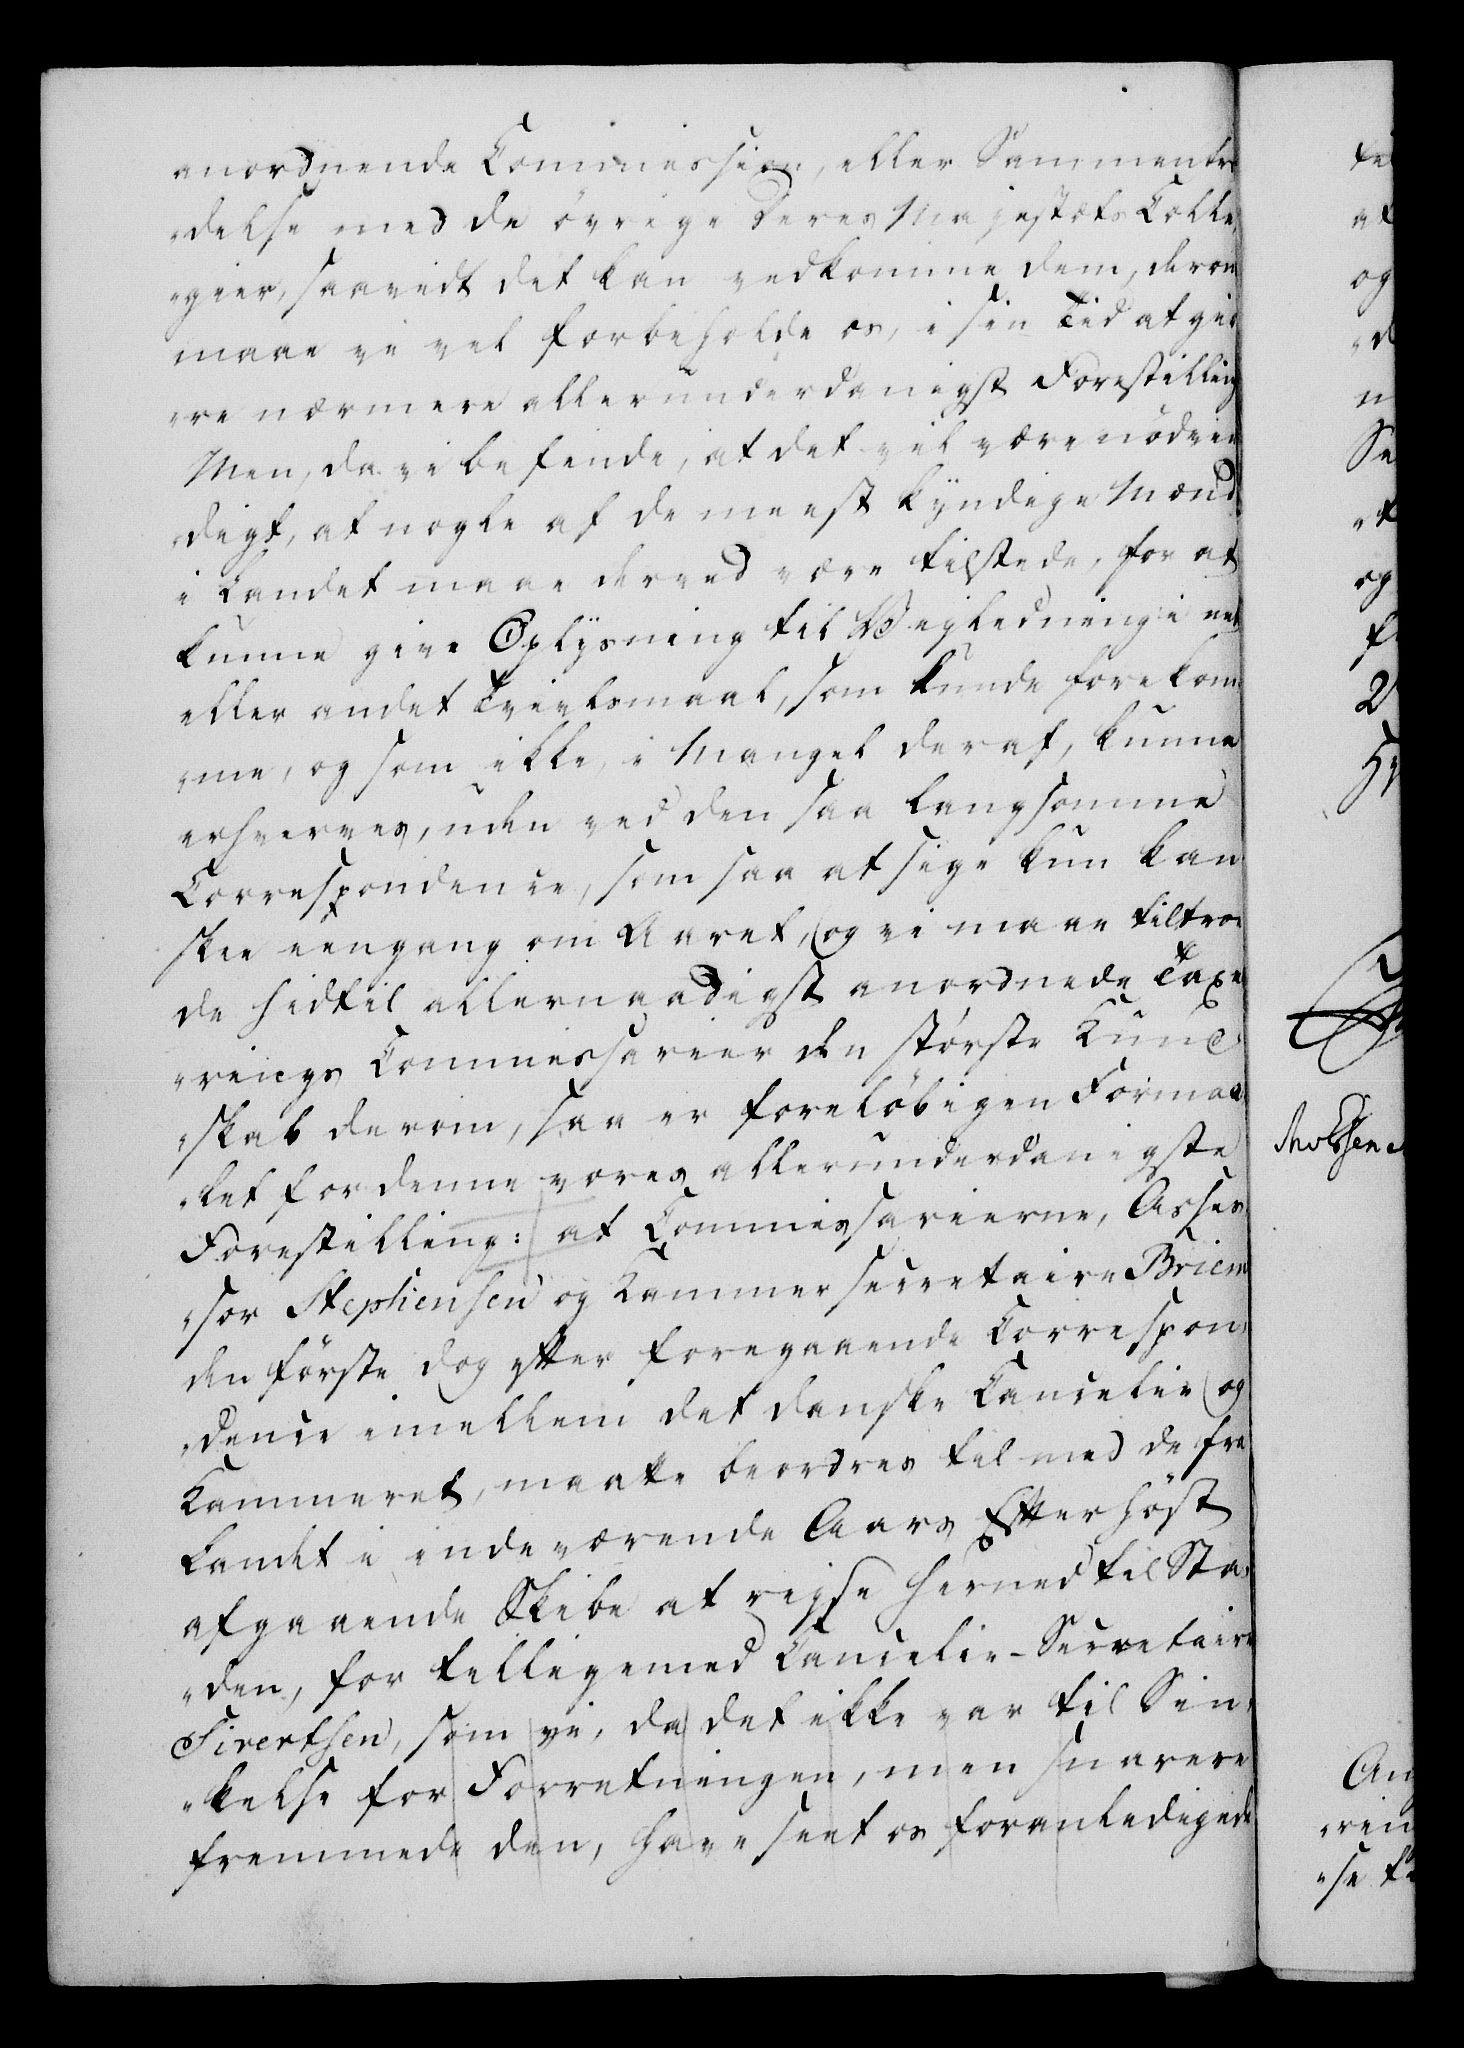 anordnende Commission, eller Sammentræ
"delse med de övrige Deres Majestæts Colle,
"gier, saavidt det kan vedkomme dem, derom
maae vi vel forbeholde os, i sin Tid at giö
"re nærmere allerunderdanigst Forestilling
Men, da vi befinde, at det vil være nödven
"digt, at nogle af de meest kyndige Mænd
i Landet maae derved være tilstede, for at
kunne give Oplysning til Vejledning i eet
eller andet Tvivlsmaal, som kunde forekom
"me, og som ikke, i Mangel deraf, kunne
erhverves, uden ved den saa langsomme
Correspondence, som saa at sige kun kan
skee eengang om Aaret, (og vi maae tiltroe
de hidtil allernaadigst anordnede Taxe
"rings Commissarier den störste Kund
"skab derom, saa er foreløbigen Formaa
"let for denne vores allerunderdanigste
Forestilling: at Commissarierne, Asses
"sor Stephensen og Kammersecretaire Briem
den förste dog efter foregaaende Correspon,
"dence imellem det danske Cancelie og
Kammeret, maatte beordres til med de fra
Landet i indeværende Aars Efterhöst
afgaaende Skibe at rejse herned til Sta,
"den, for tilligemed Cancelie-Secretaire
Sivertsen, som vi, da det ikke var til Sin,
"kelse for Forretningen, men snarere
fremmede den, have seet os foranledigede
til
at
og
"d
n
Se
"t
og
f
Hv
An
"rin
"se